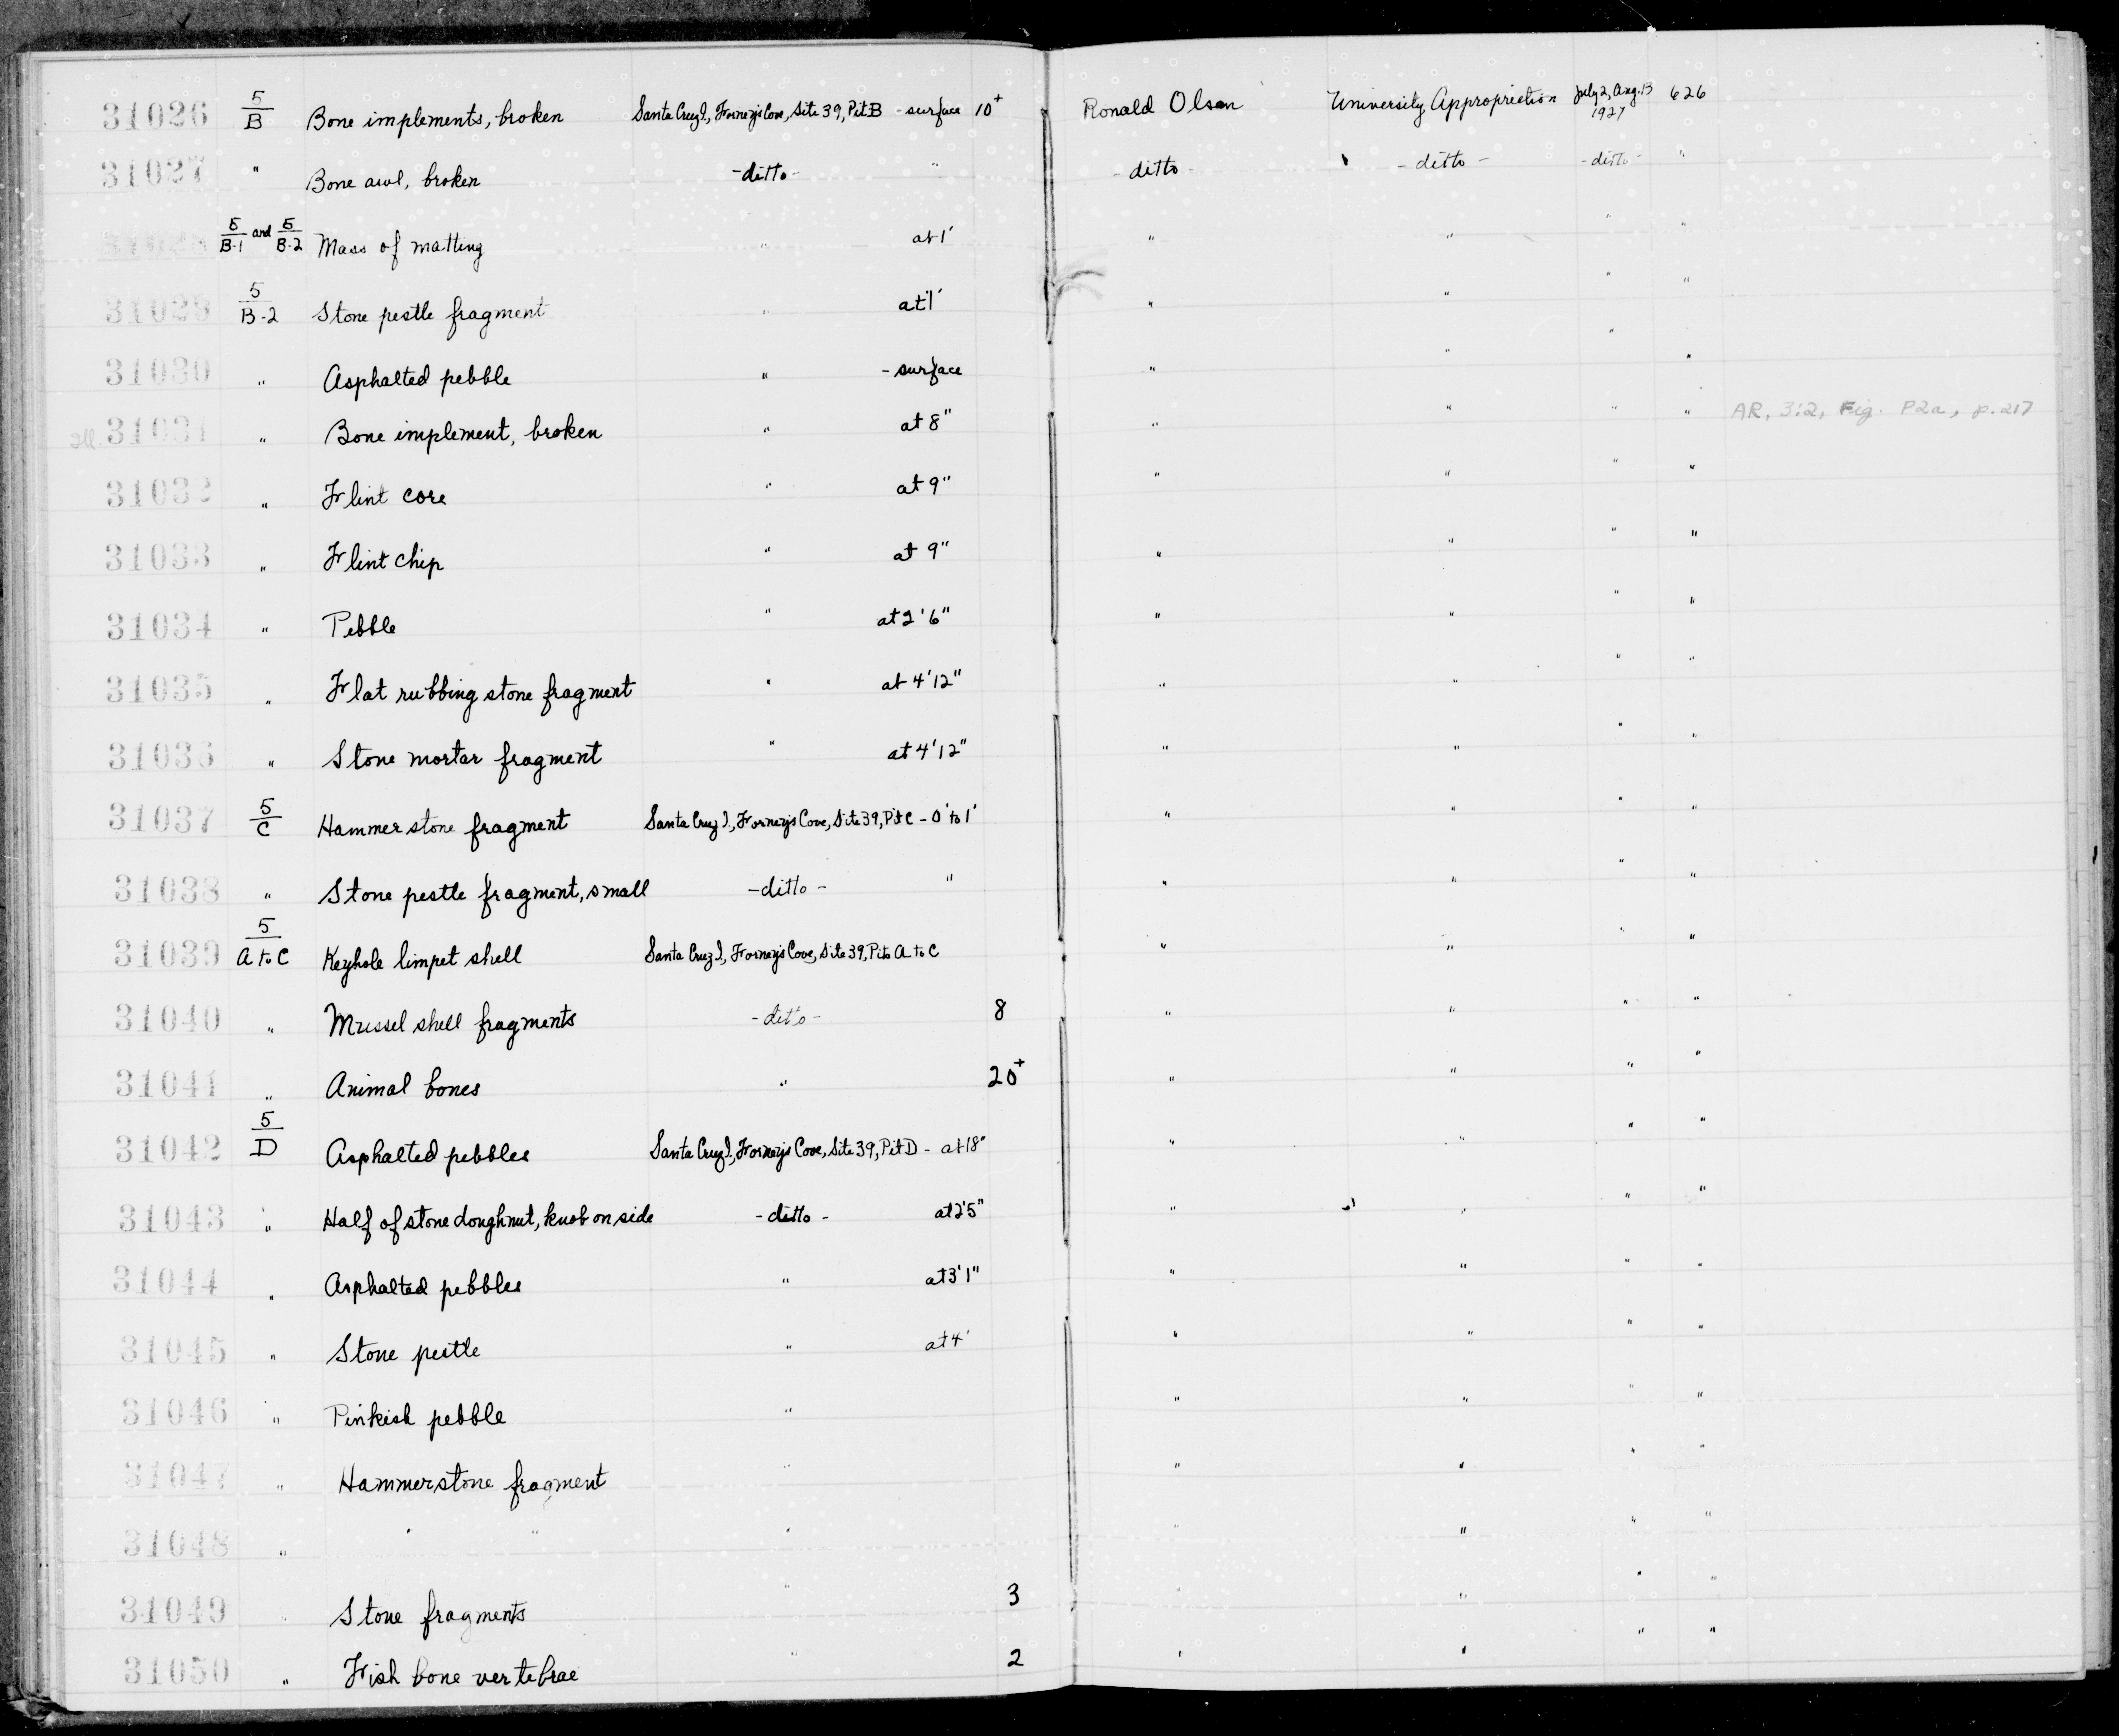 31026 5/B Bone implements, broken Santa Cruz I., Forney's Cove, Site 39, Pit B - surface 10+ Ronald Olson University Appropriation July 2, Aug. 13 1927 626
31027 " Bone awl, broken -ditto- " -ditto- -ditto- -ditto- "
31028 5/B-1 and 5/B-2 Mass of matting " at 1' " " " "
31029 5/B-2 Stone pestle fragment " at 1' " " " "
31030 " Asphalted pebble " - surface " " " "
Ill. 31031 " Bone implement, broken " at 8" " " " " AR, 3:2, Fig. P2a, p.217
31032 " Flint core " at 9" " " " "
31033 " Flint chip " at 9" " " " "
31034 " Pebble " at 2'6" " " " "
31035 " Flat rubbing stone fragment " at 4'12" " " " "
31036 " Stone mortar fragment " at 4'12" " " " "
31037 5/C Hammerstone fragment Santa Cruz I., Forney's Cove, Site 39, Pit C - 0' to 1' " " " "
31038 " Stone pestle fragment, small -ditto- " " " " "
31039 5/A to C Keyhole limpet shell Santa Cruz I., Forney's Cove, Site 39, Pits A to C " " " "
31040 " Mussel shell fragments -ditto- 8 " " " "
31041 " Animal bones " 20+ " " " "
31042 5/D Asphalted pebbles Santa Cruz I., Forney's Cove, Site 39, Pit D - at 18" " " " "
31043 " Half of stone doughnut, knob on side -ditto- at 2'5" " " " "
31044 " Asphalted pebbles " at 3'1" " " " "
31045 " Stone pestle " at 4' " " " "
31046 " Pinkish pebble " " " " "
31047 " Hammerstone fragment " " " " "
31048 " " " " " " " "
31049 " Stone fragments " 3 " " " "
31050 " Fish bone vertebrae " 2 " " " "